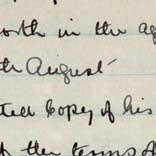 orth in the ag
th August
ted Copy of his
of the terms of